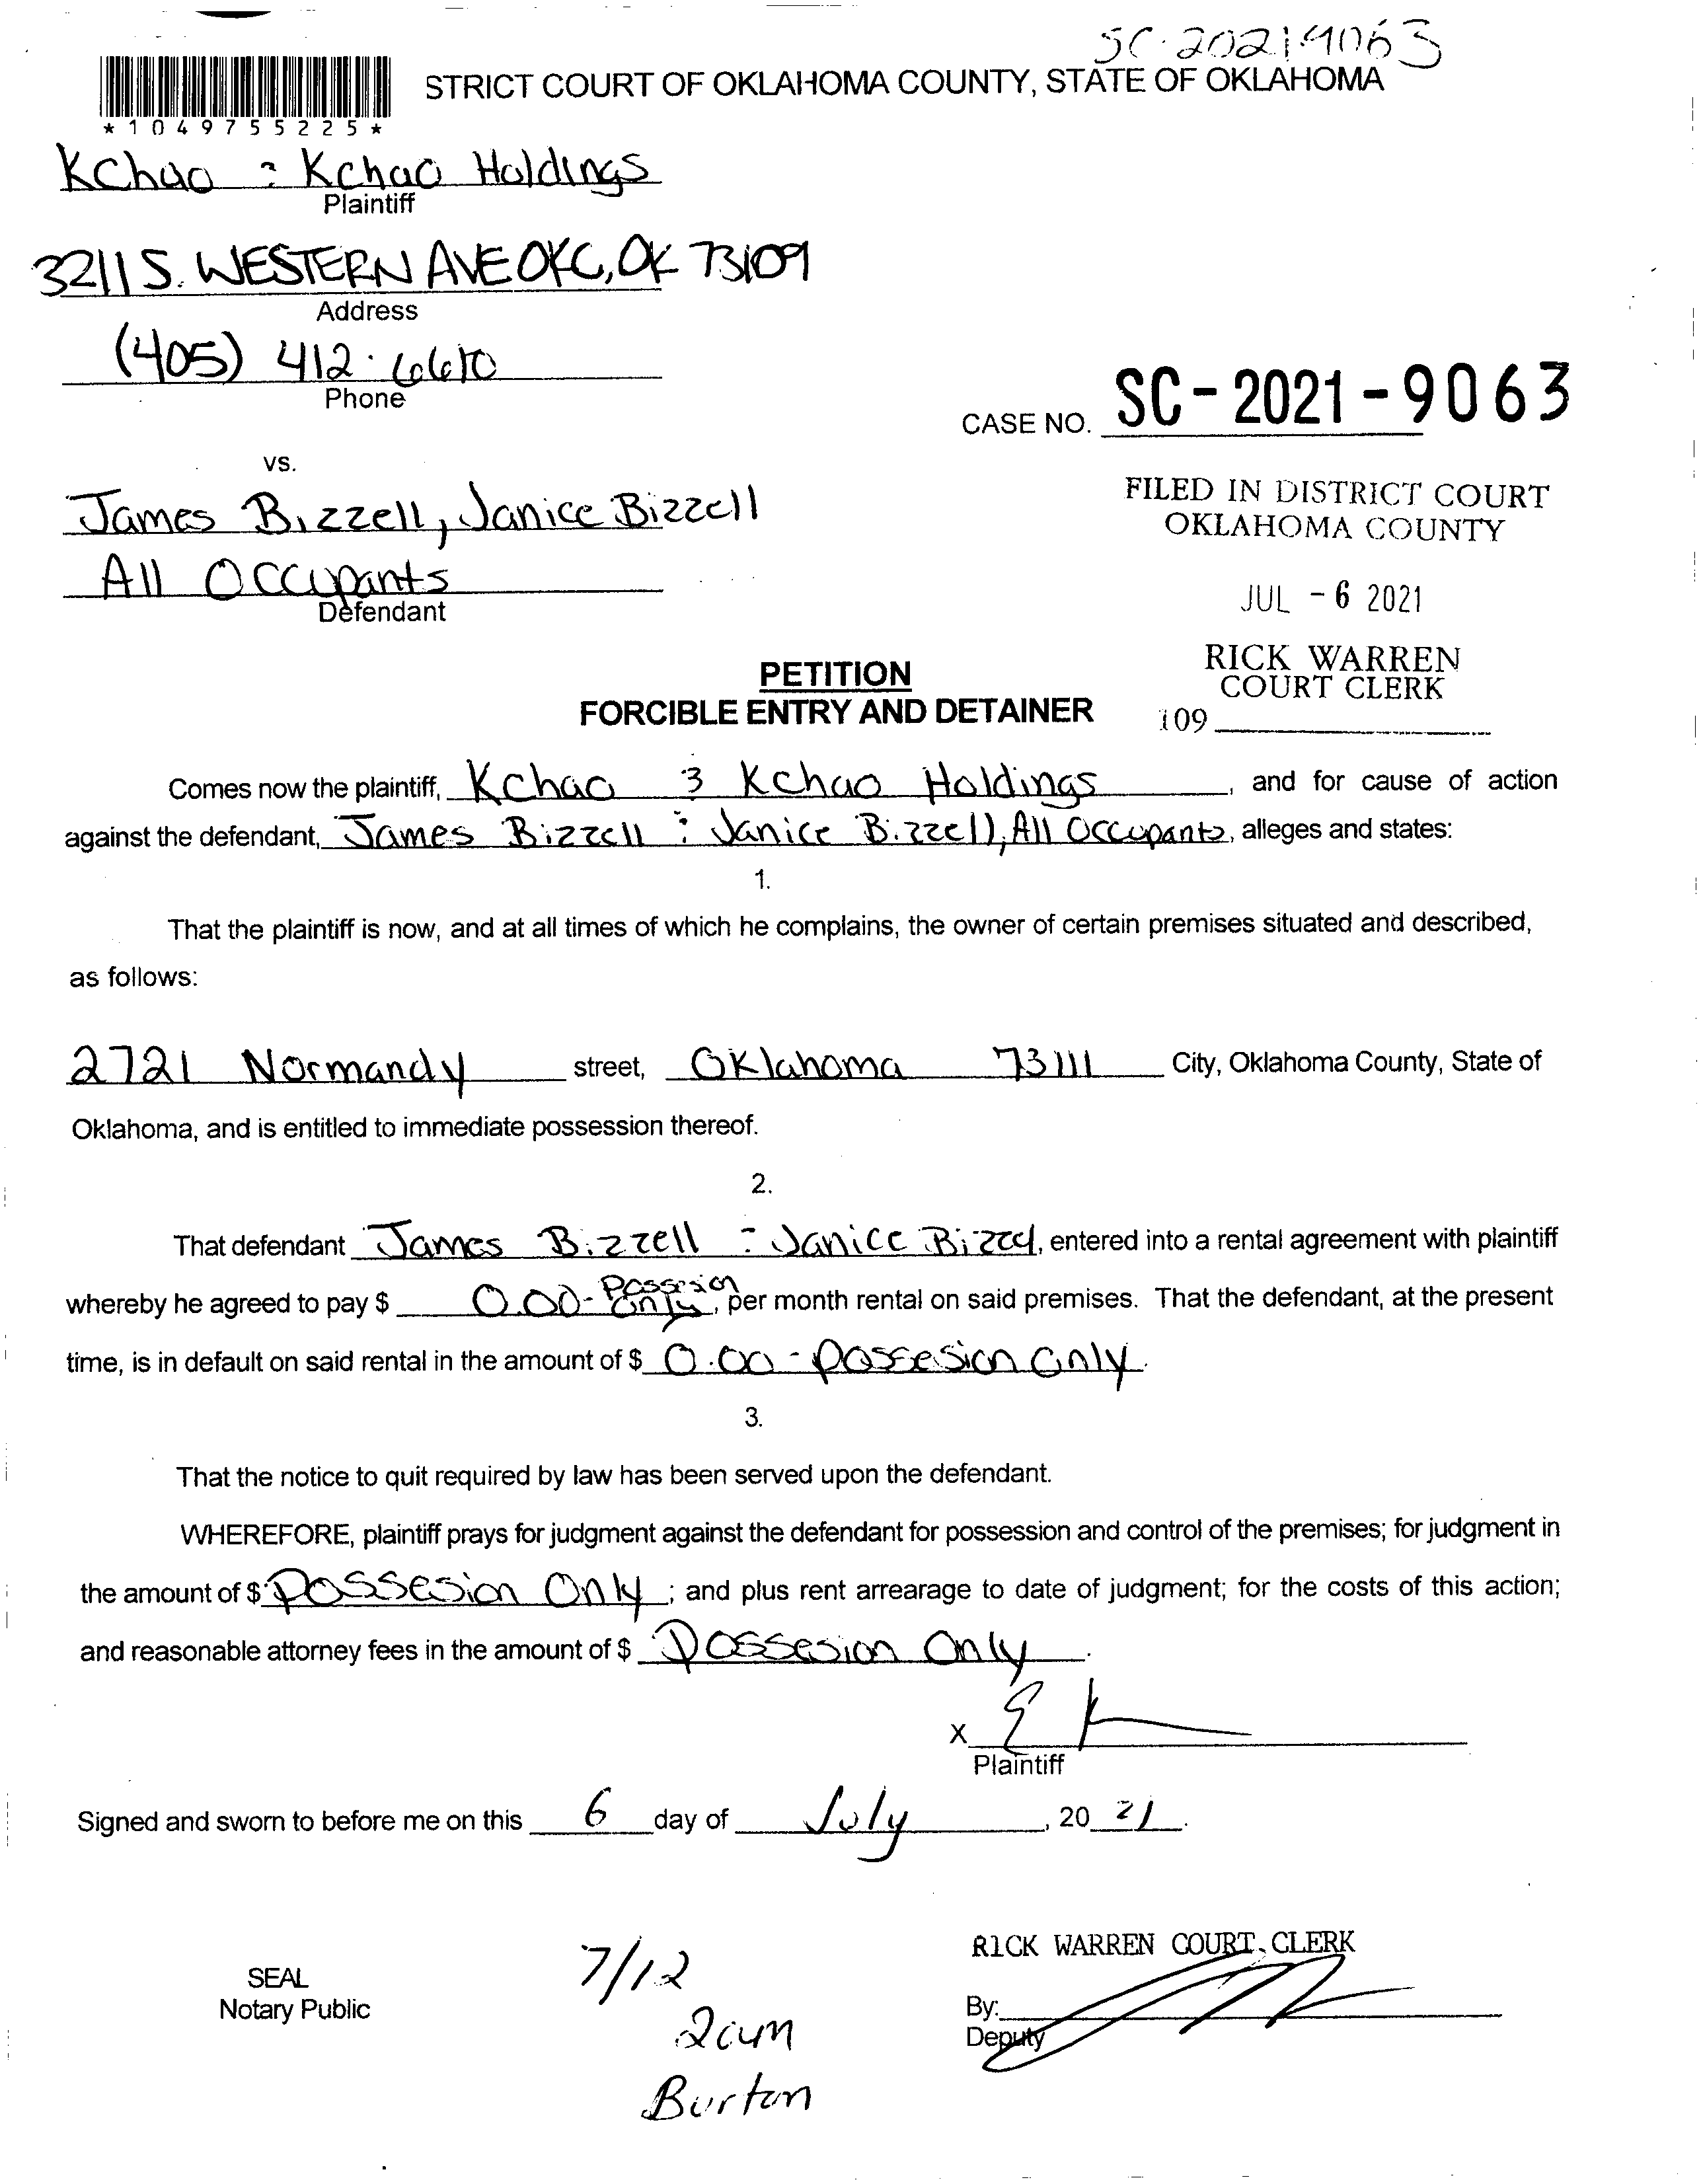 SC-2021-9063
STRICT COURT OF OKLAHOMA COUNTY, STATE OF OKLAHOMA
*1049755225*
KChao & Kchao Holdings
Plaintiff
3211 S. WESTERN AVE OKC, OK 73109
Address
(405) 412-6610
Phone
CASE NO. SC-2021-9063
vs.
James Bizzell, Janice Bizzell
All Occupants
Defendant
FILED IN DISTRICT COURT
OKLAHOMA COUNTY
JUL -6 2021
RICK WARREN
COURT CLERK
109
PETITION
FORCIBLE ENTRY AND DETAINER
Comes now the plaintiff, Kchao & Kchao Holdings, and for cause of action
against the defendant, James Bizzell & Janice Bizzell, All Occupants, alleges and states:
1.
That the plaintiff is now, and at all times of which he complains, the owner of certain premises situated and described,
as follows:
2721 Normandy street, Oklahoma 73111 City, Oklahoma County, State of
Oklahoma, and is entitled to immediate possession thereof.
2.
That defendant James Bizzell & Janice Bizzell, entered into a rental agreement with plaintiff
whereby he agreed to pay $ 0.00 - Possesion only, per month rental on said premises. That the defendant, at the present
time, is in default on said rental in the amount of $ 0.00 - Possesion Only.
3.
That the notice to quit required by law has been served upon the defendant.
WHEREFORE, plaintiff prays for judgment against the defendant for possession and control of the premises; for judgment in
the amount of $ Possesion Only; and plus rent arrearage to date of judgment; for the costs of this action;
and reasonable attorney fees in the amount of $ Possesion Only.
X
Plaintiff
Signed and sworn to before me on this 6 day of July, 20 21.
SEAL
Notary Public
7/12
Burton
RICK WARREN COURT CLERK
By:
Deputy